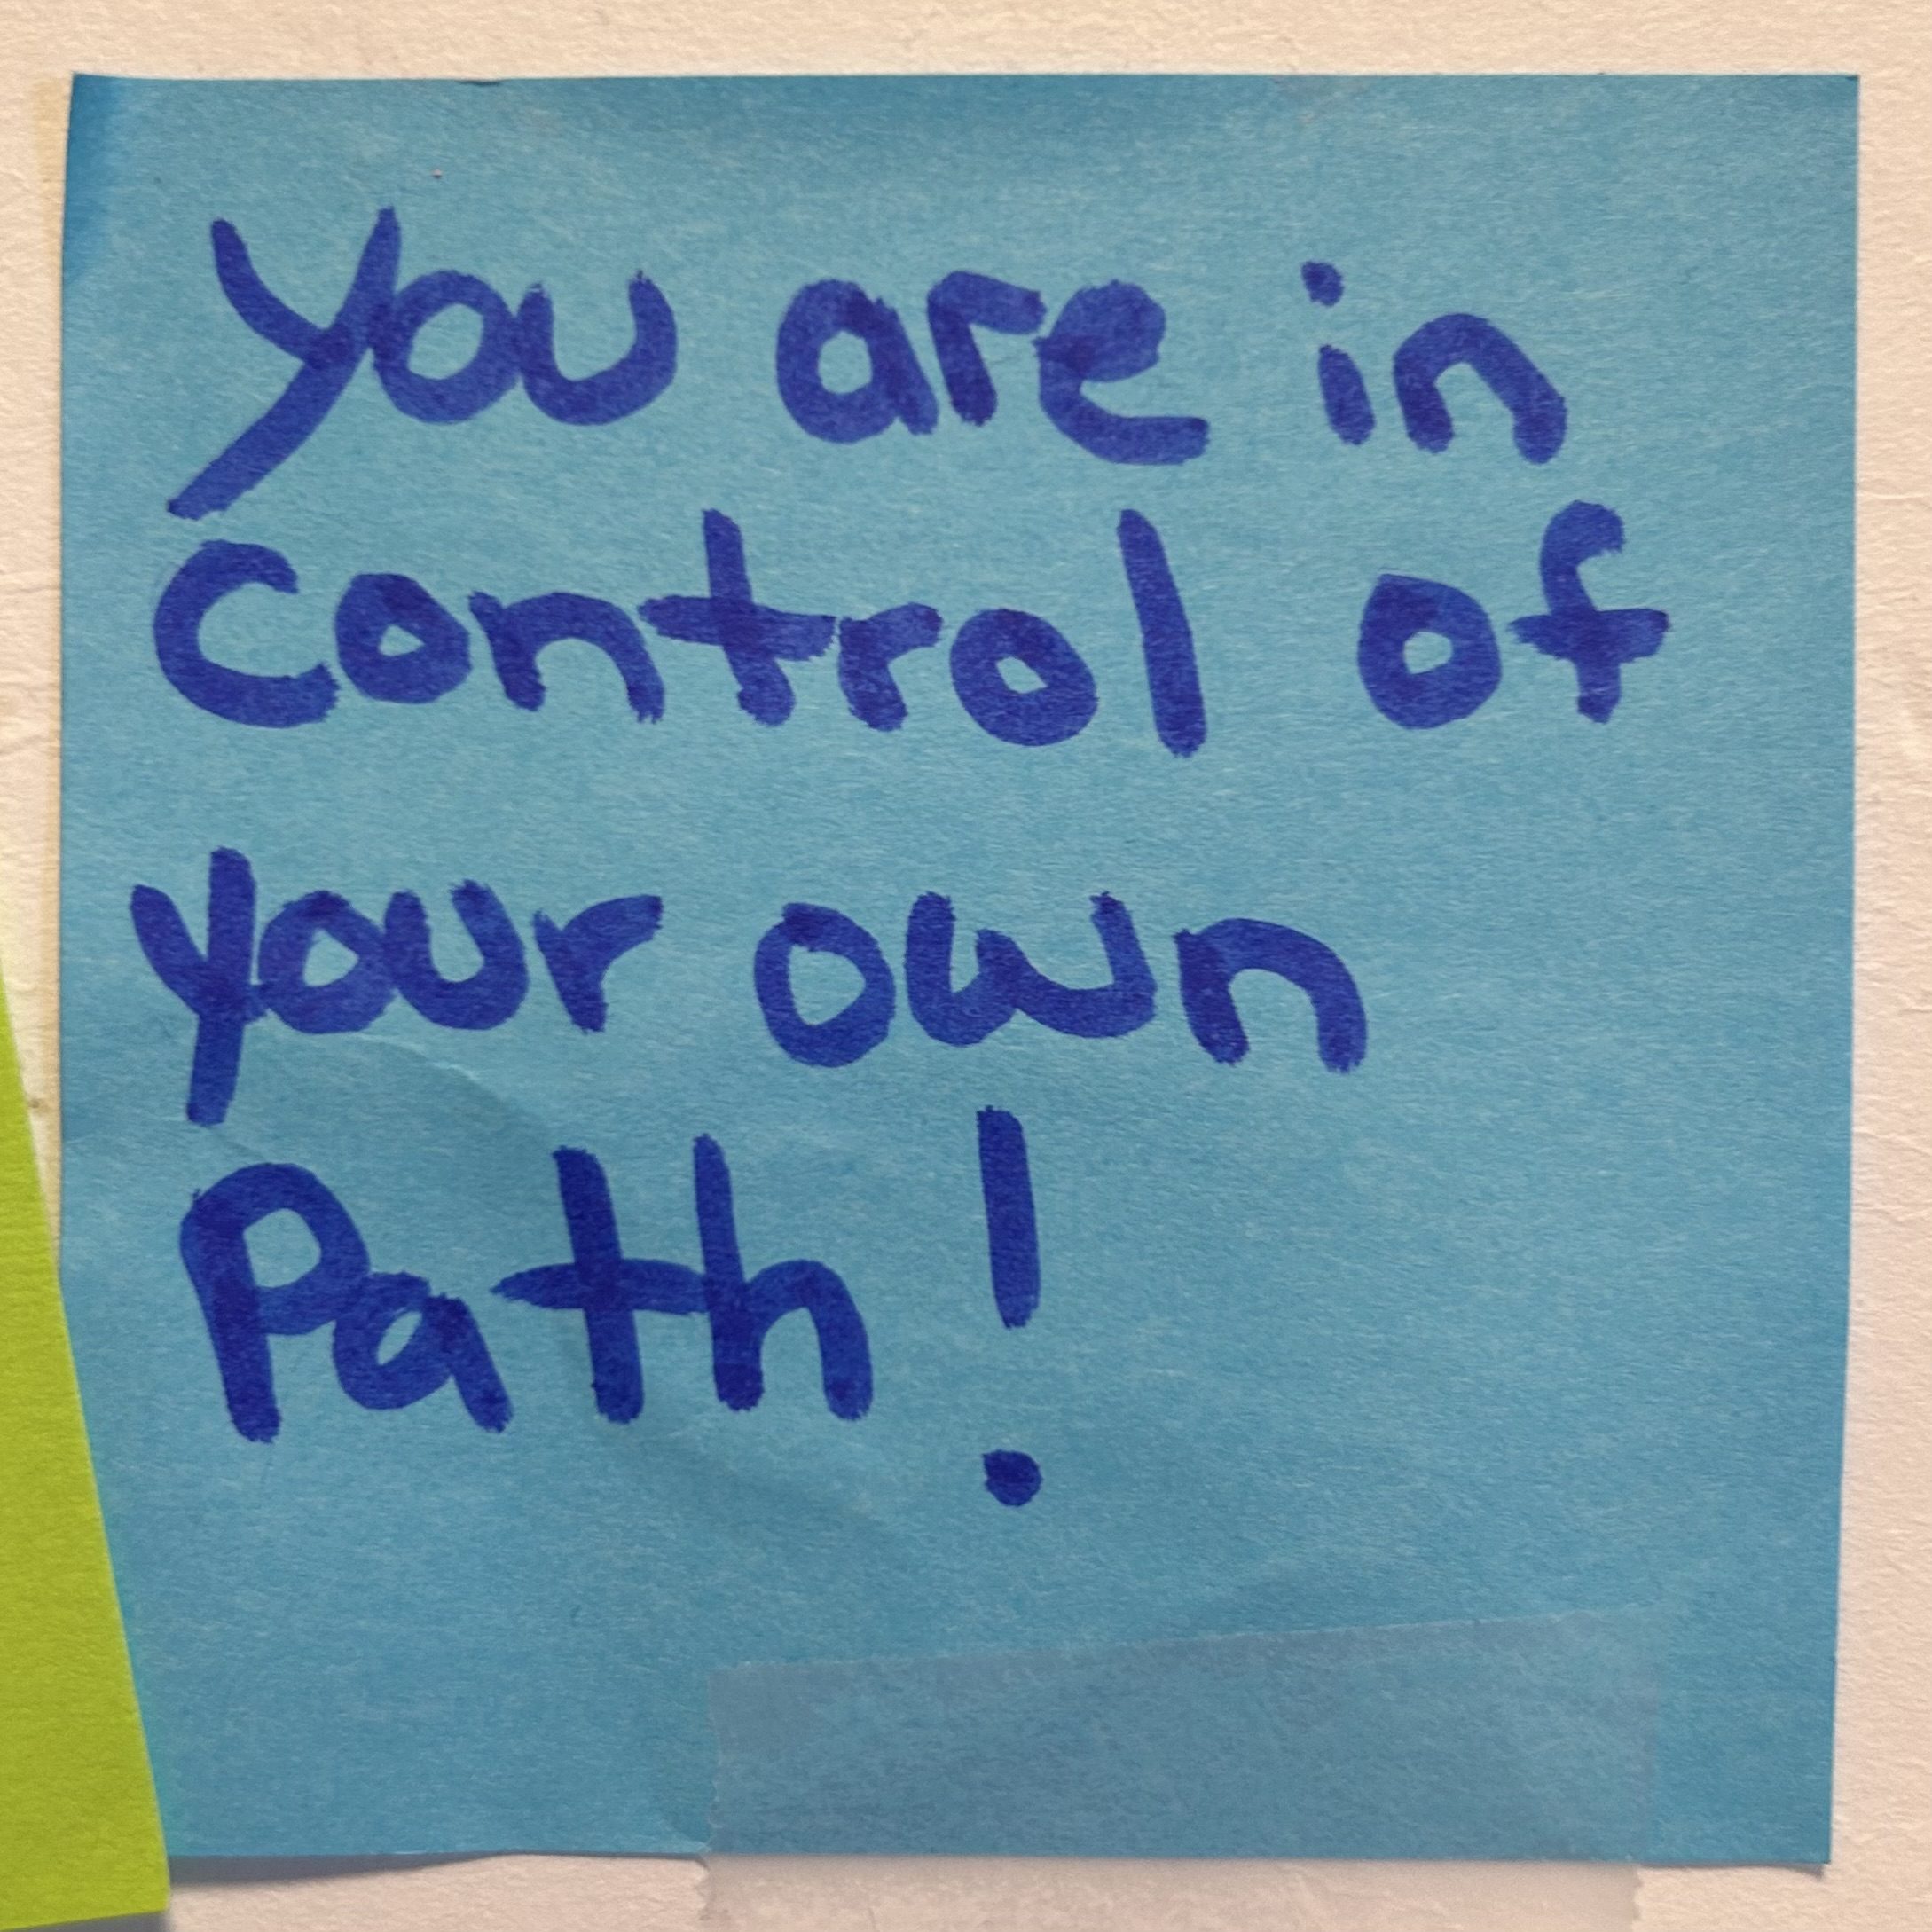 You are in
Control of
your own
Path!